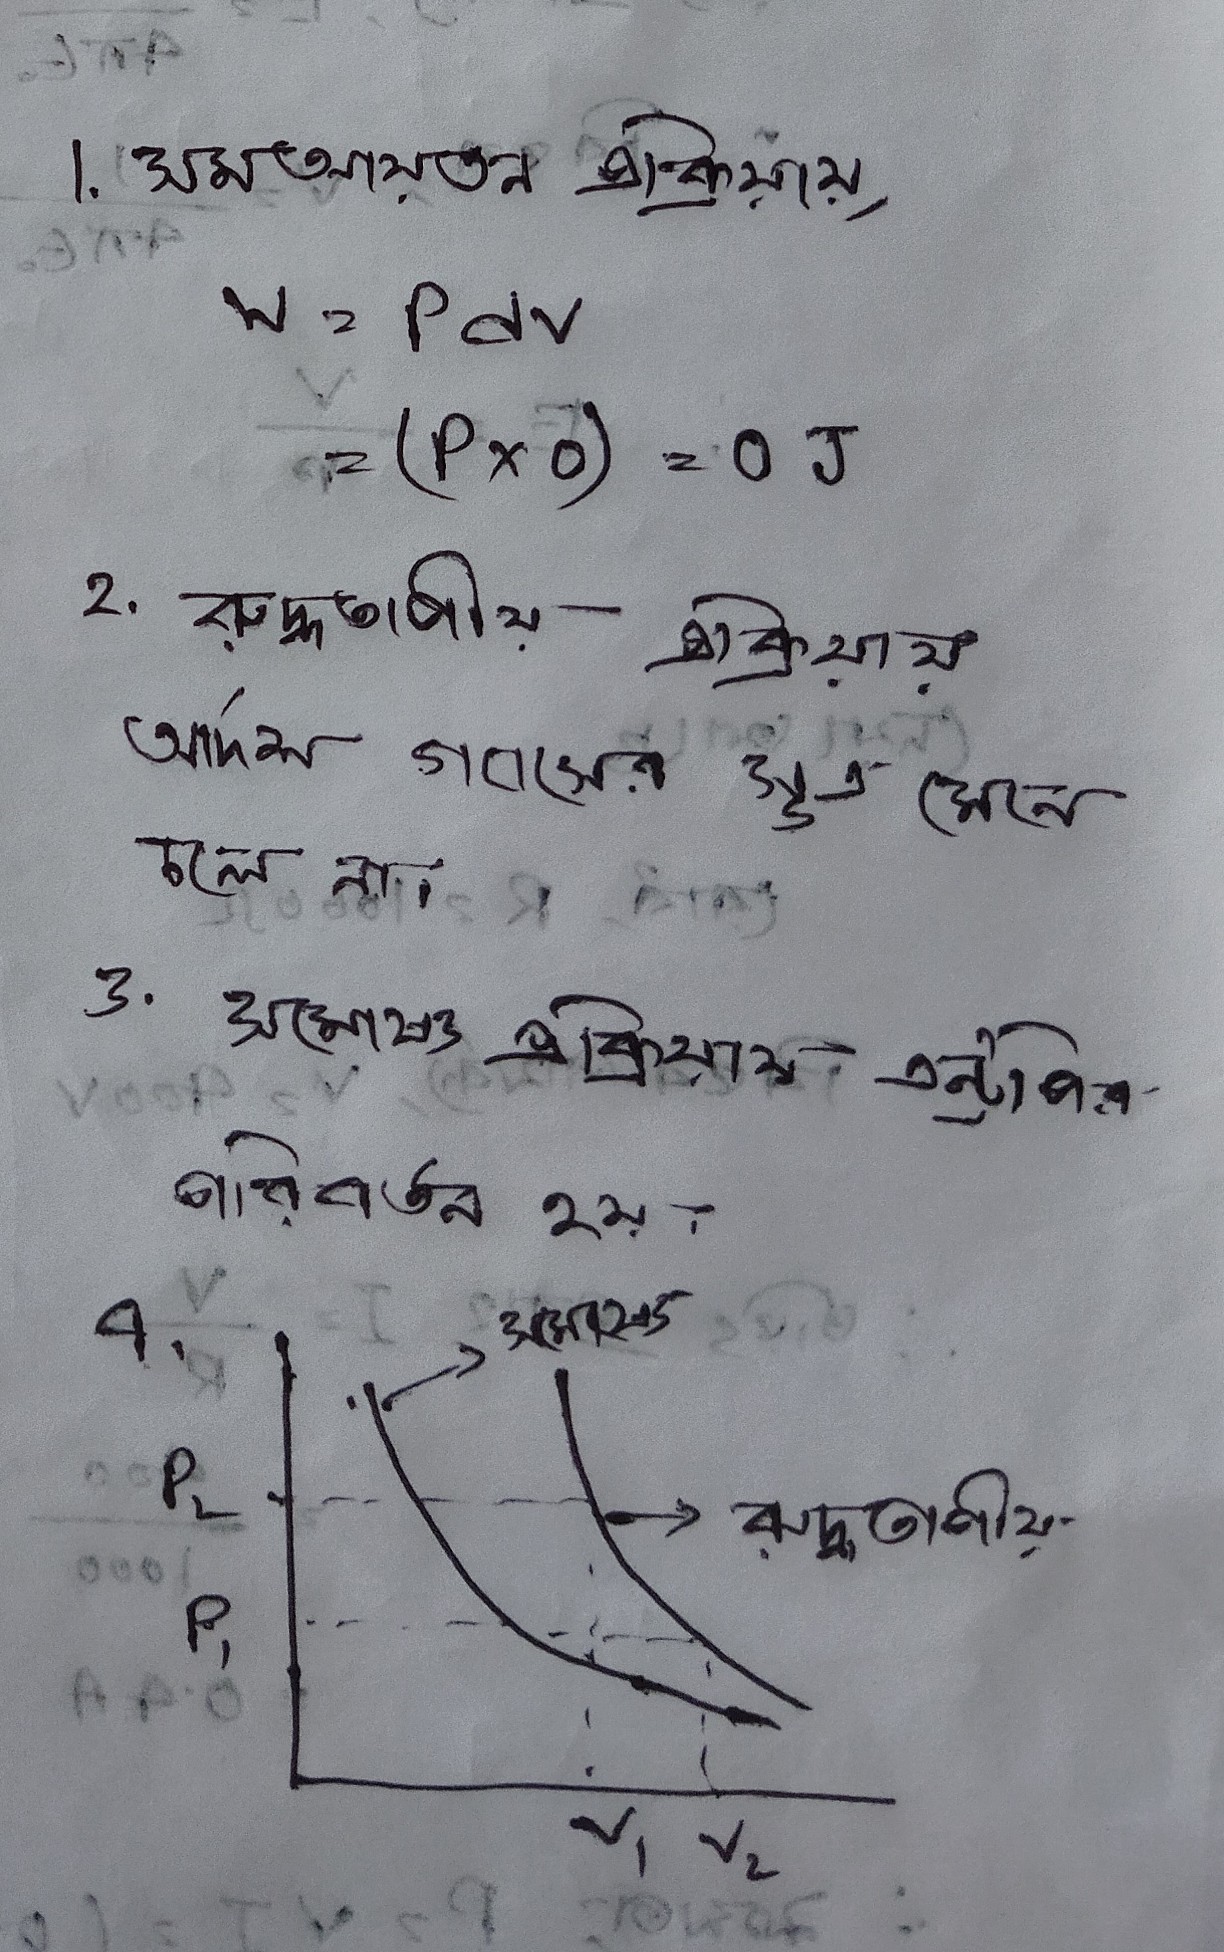 1. সমআয়তন প্রক্রিয়ায়,
W = P dV
= (P × 0) = 0 J
2. রুদ্ধতাপীয় প্রক্রিয়ায়
আর্দশ গ্যাসের সূত্র মেনে
চলে না।
3. সমোষ্ণ প্রক্রিয়ায় এন্ট্রপির
পরিবর্তন হয়।
4.
সমোষ্ণ
P₂
রুদ্ধতাপীয়
P₁
V₁ V₂